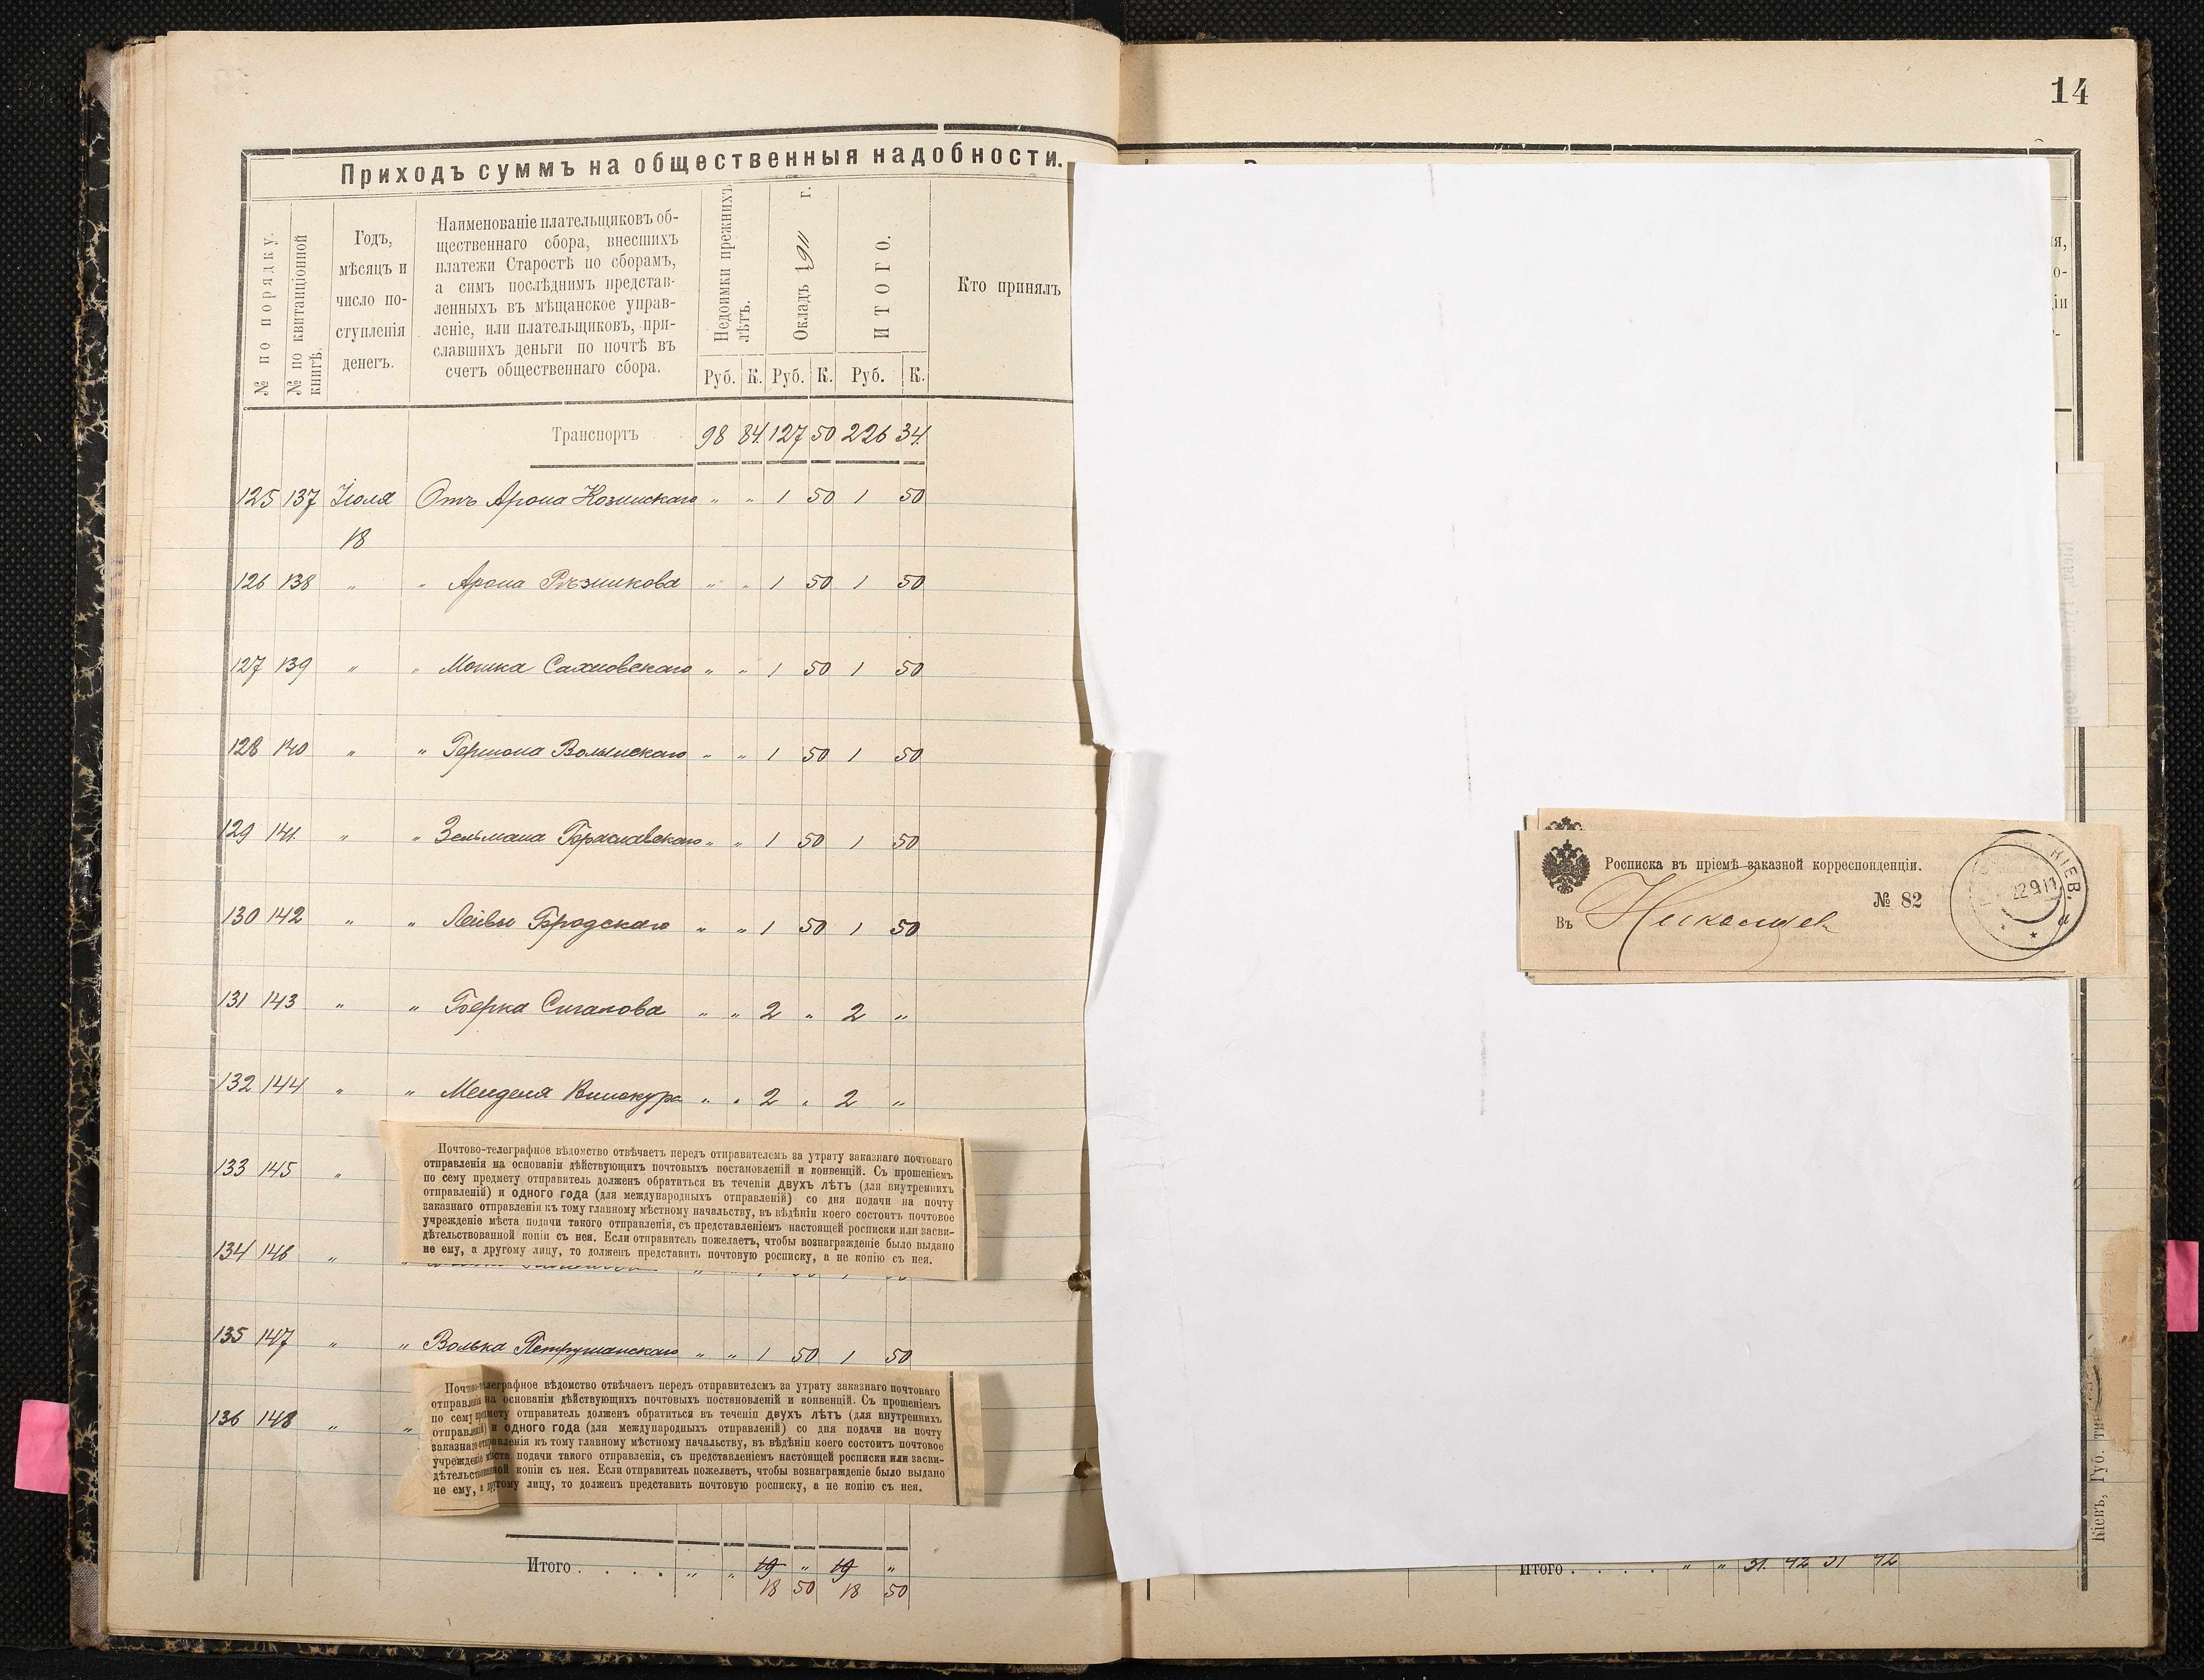 14
Приходъ суммъ на общественныя надобности.
№ по порядку.
№ по квитанціонной книгѣ.
Годъ,
мѣсяцъ и
число по-
ступленія
денегъ.
Наименованіе плательщиковъ об-
щественнаго сбора, внесшихъ
платежи Старостѣ по сборамъ,
а симъ послѣднимъ представ-
ленныхъ въ мѣщанское управ-
леніе, или плательщиковъ, при-
славшихъ деньги по почтѣ въ
счетъ общественнаго сбора.
Недоимки прежнихъ лѣтъ.
Окладъ 1911 г.
ИТОГО.
Кто принялъ
Руб. К. Руб. К. Руб. К.
Транспортъ 98 84 127 50 226 34
125 137 Іюля Отъ Арона Козинскаго " " 1 50 1 50
18
126 138 " " Арона Рѣзникова " " 1 50 1 50
127 139 " " Мошка Сахновскаго " " 1 50 1 50
128 140 " " Гершона Волынскаго " " 1 50 1 50
129 141 " " Зельмана " " 1 50 1 50
130 142 " " Лейвы Бродскаго " " 1 50 1 50
131 143 " " Берка Сигалова " " 2 " 2 "
132 144 " " Менделя Винокура " " 2 " 2 "
133 145 "
Почтово-телеграфное вѣдомство отвѣчаетъ передъ отправителемъ за утрату заказнаго почтоваго
отправленія на основаніи дѣйствующихъ почтовыхъ постановленій и конвенцій. Съ прошеніемъ
по сему предмету отправитель долженъ обратиться въ теченіи двухъ лѣтъ (для внутреннихъ
отправленій) и одного года (для международныхъ отправленій) со дня подачи на почту
заказнаго отправленія къ тому главному мѣстному начальству, въ вѣдѣніи коего состоитъ почтовое
учрежденіе мѣста подачи такого отправленія, съ представленіемъ настоящей росписки или засви-
дѣтельствованной копіи съ нея. Если отправитель пожелаетъ, чтобы вознагражденіе было выдано
не ему, а другому лицу, то долженъ представить почтовую росписку, а не копію съ нея.
134 146 "
135 147 " " Волька Петрушанскаго " " 1 50 1 50
136 148 " "
Почтово-телеграфное вѣдомство отвѣчаетъ передъ отправителемъ за утрату заказнаго почтоваго
отправленія на основаніи дѣйствующихъ почтовыхъ постановленій и конвенцій. Съ прошеніемъ
по сему предмету отправитель долженъ обратиться въ теченіи двухъ лѣтъ (для внутреннихъ
отправленій) и одного года (для международныхъ отправленій) со дня подачи на почту
заказнаго отправленія къ тому главному мѣстному начальству, въ вѣдѣніи коего состоитъ почтовое
учрежденіе мѣста подачи такого отправленія, съ представленіемъ настоящей росписки или засви-
дѣтельствованной копіи съ нея. Если отправитель пожелаетъ, чтобы вознагражденіе было выдано
не ему, а другому лицу, то долженъ представить почтовую росписку, а не копію съ нея.
Итого . . . . " " 19 " 19 "
18 50 18 50
Росписка въ пріемѣ заказной корреспонденціи.
№ 82
Въ
КІЕВ.
22 9 11
Итого . . . . " " 31 42 31 42
Кіевъ, Губ. тип